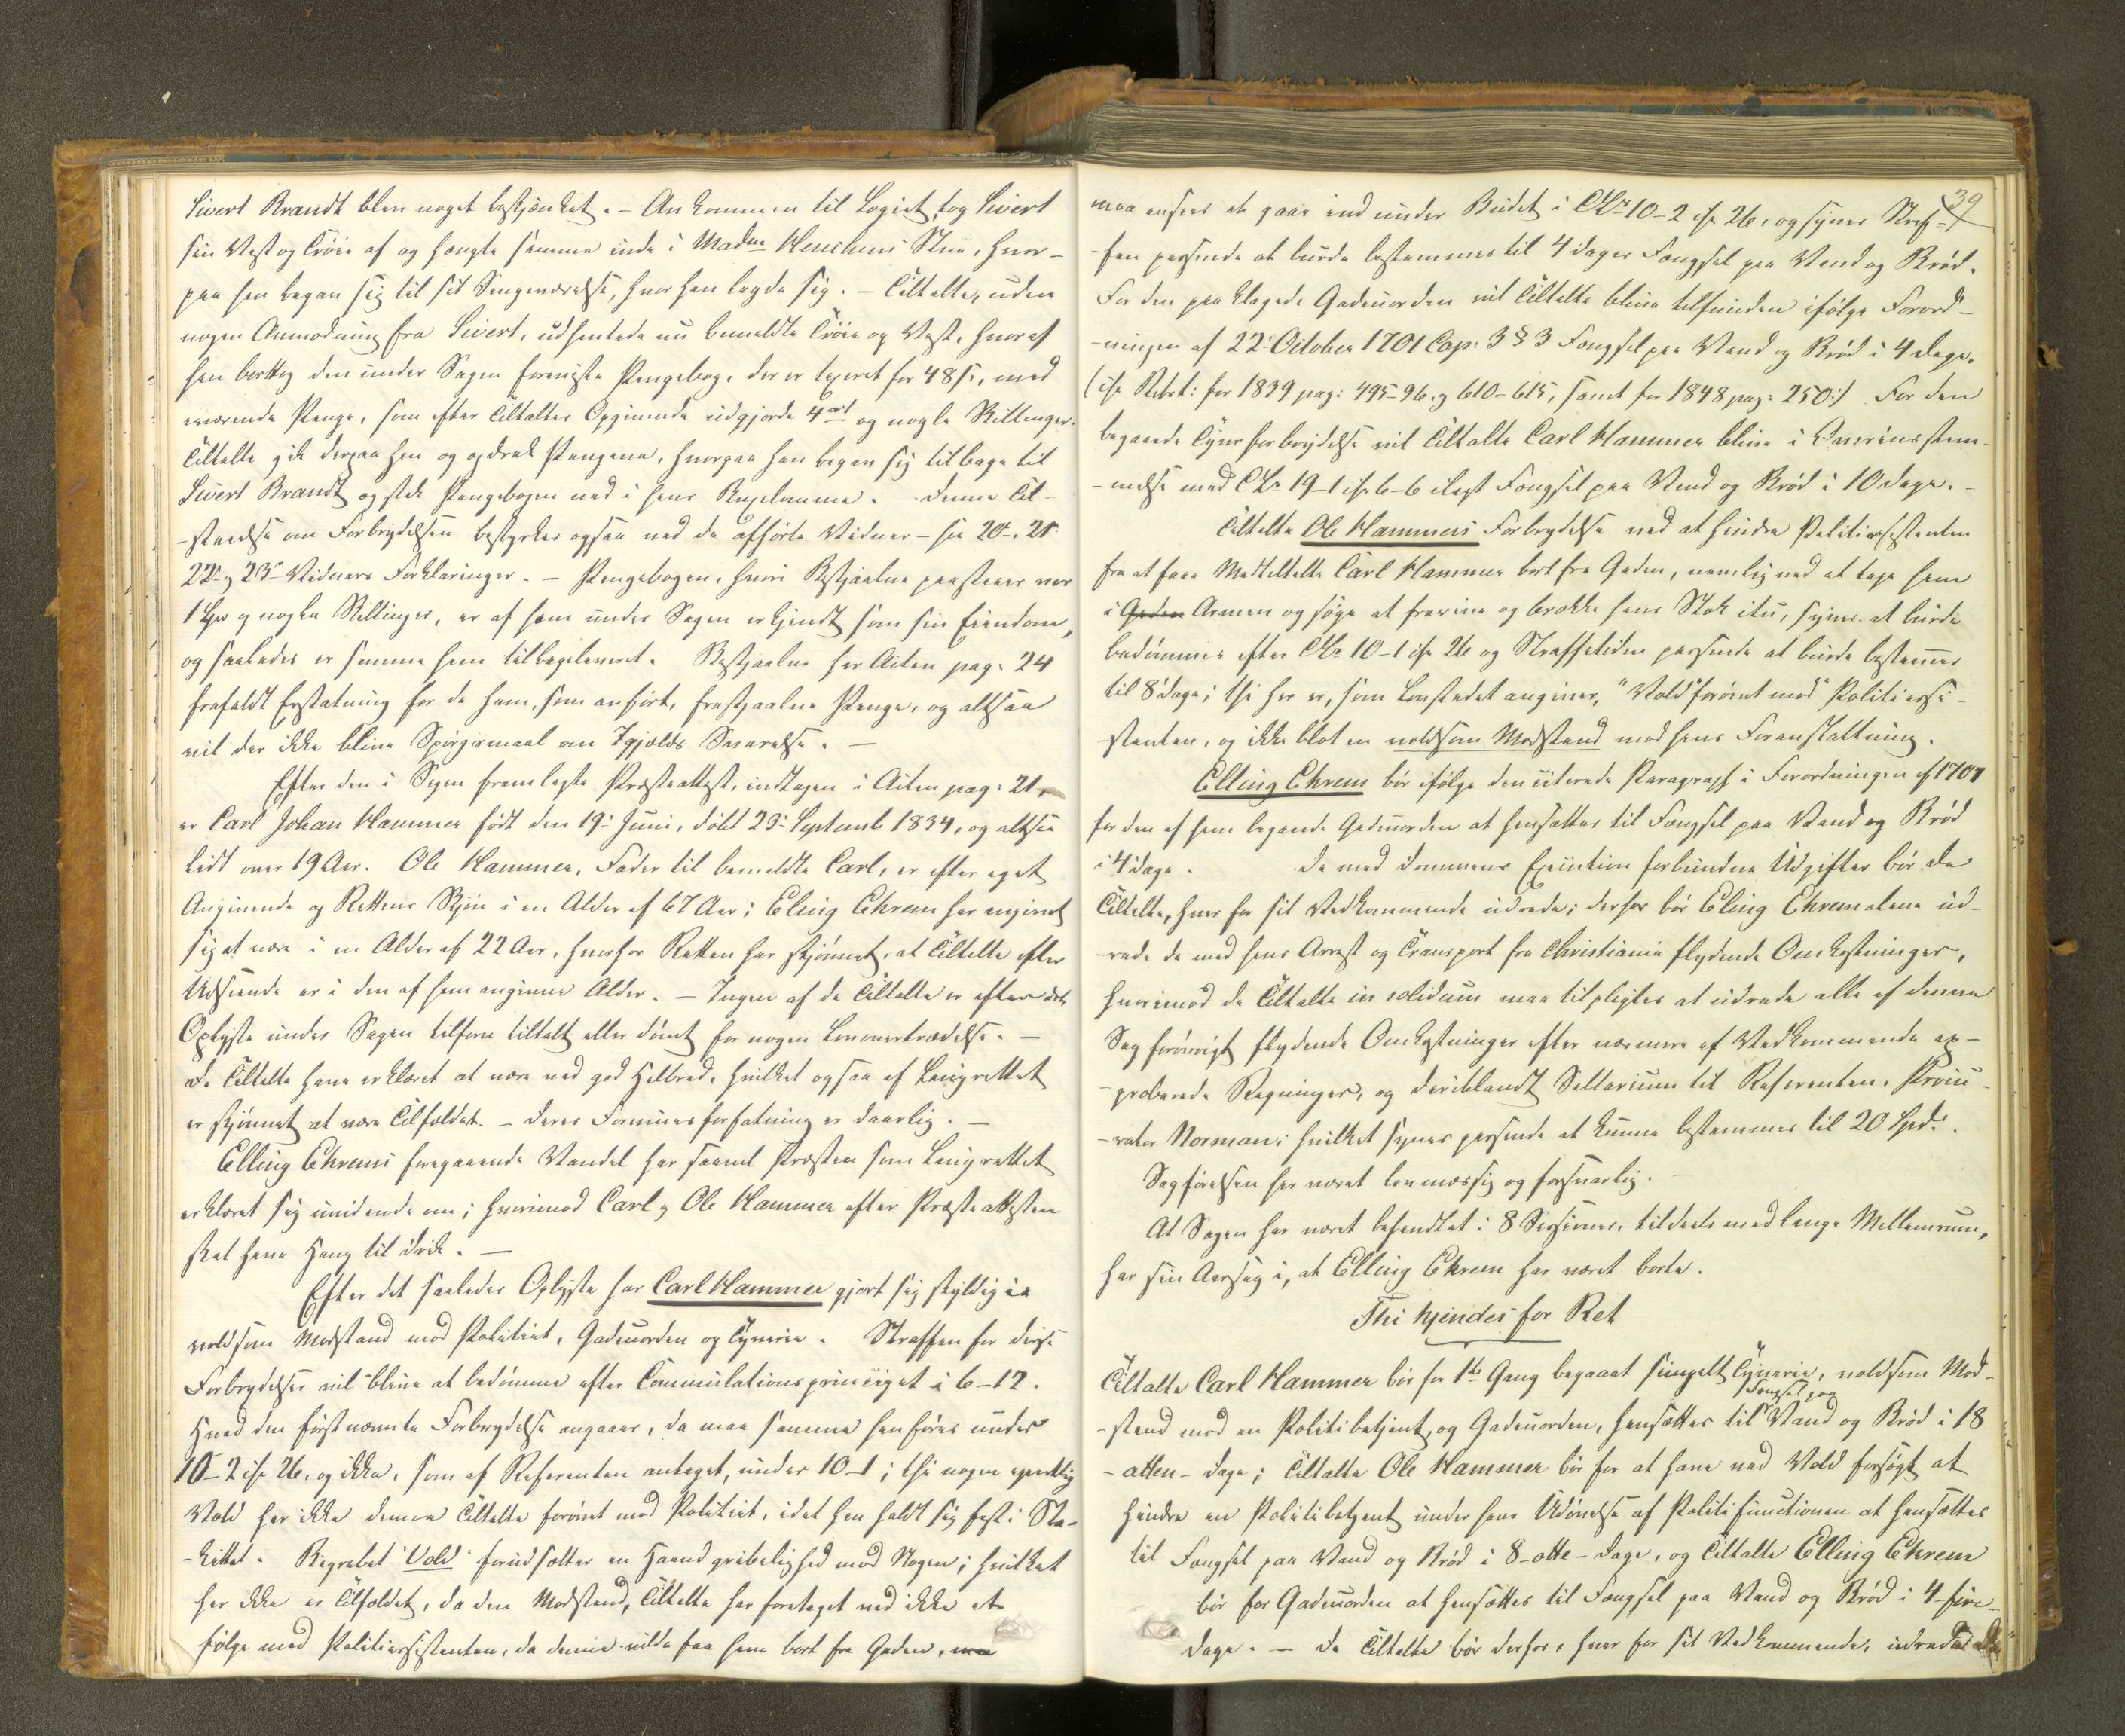 Sivert Brandt blev noget beskjænket. – Ankommen til Logiet, tog Sivert
sin Vest og Trøie af og hængte samme inde i Madm Henchens Stue, hvor-
paa han begav sig til sit Sengeværelse, hvor han lagde sig. – Tiltalte, uden
nogen Anmodning fra Sivert, udhentede nu bemeldte Trøie og Vest, hvoraf
han borttog den under Sagen foreviste Pengebog, der er taxeret for 48 ſ, med
iværende Penge, som efter Tiltaltes Opgivende udgjorde 4 ort og nogle Skillinger.
Tiltalte gik derpaa hen og opdrak Pengene, hvorpaa han begav sig tilbage til
Sivert Brandt og stak Pengebogen ned i hans Buxelomme. Denne Til-
-staaelse om Forbrydelsen bestyrkes ogsaa ved de afhørte Vidner – see 20de, 21
22 og 23de Vidners Forklaringer. – Pengebogen, hvori Bestjaalne paastaaer var
1 Spd og nogle Skillinger, er af ham under Sagen erkjendt som sin Eiendom,
og saaledes er samme ham tilbageleveret. Bestjaalne har Acten pag. 24
frafaldt Erstatning for de ham, som anført, frastjaalne Penge, og altsaa
vil der ikke blive Spørgsmaal om Igjælds Svarelse. –
Efter den i Sagen fremlagte Præsteattest, indtagen i Acten pag: 21,
er Carl Johan Hammer født den 19de Juni, døbt 23de Septemb 1834, og altsaa
lidt over 19 Aar. Ole Hammer, Fader til bemeldte Carl, er efter eget
Angivende og Rettens Skjøn i en Alder af 67 Aar; Elling Ekrem har angivet
sig at være i en Alder af 22 Aar, hvorfor Retten har skjønnet, at Tiltalte efter
Udseende er i den af ham angivne Alder. – Ingen af de Tiltalte er efter det
Oplyste under Sagen tilforn tiltalt eller dømt for nogen Lovovertrædelse. –
De Tiltalte have erklæret at være ved god Helbred, hvilket ogsaa af Laugrettet
er skjønnet at være Tilfældet. – Deres Formuesforfatning er daarlig. –
Elling Ekrems foregaaende Vandel har saavel Præsten som Laugrettet
erklæret sig uvidende om; hvorimod Carl og Ole Hammer efter Præsteattesten
skal have Hang til Drik. –
Efter det saaledes Oplyste har Carl Hammer gjort sig skyldig i
voldsom Modstand mod Politiet, Gadeuorden og Tyverie. Straffen for disse
Forbrydelser vil blive at bedømme efter Cumulationsprincipet i 6–12.
Hvad den førstnævnte Forbrydelse angaaer, da maa samme henføres under
10–2 cfr 26, og ikke, som af Referenten antaget, under 10–1; thi nogen egentlig
Vold har ikke denne Tiltalte forøvet mod Politiet, idet han holdt sig fast i Sta-
-kittet. Begrebet "Vold" forudsætter en Haandgribelighed mod Nogen; hvilket
her ikke er Tilfældet, da den Modstand, Tiltalte har foretaget ved ikke at
følge med Politiassistenten, da denne vilde faa ham bort fra Gaden, maa
39
maa ansees at gaae ind under Budet i CLr 10–2 cfr 26, og synes Straf-
-fen passende at burde bestemmes til 4 Dages Fængsel paa Vand og Brød.
For den paaklagede Gadeuorden vil Tiltalte blive tilfunden ifølge Forord-
-ningen af 22de October 1701 Cap: 3 § 3 Fængsel paa Vand og Brød i 4 Dage.
(cfr Retst: for 1839 pag: 495–96 og 610–615, samt for 1848 pag: 250.) For den
begaaede Tyvsforbrydelse vil Tiltalte Carl Hammer blive i Overensstem-
-melse med CLr 19–1 cfr 6–6 ilagt Fængsel paa Vand og Brød i 10 Dage. –
Tiltalte Ole Hammers Forbrydelse ved at hindre Politiassistenten
fra at faae Medtiltalte Carl Hammer bort fra Gaden, nemlig ved at tage ham
i Gaden Armen og søge at fravine og brække hans Stok itu, synes at burde
bedømmes efter CLr 10–1 cfr 26 og Straffetiden passende at burde bestemmes
til 8 Dage; thi her er, som Lovstedet angiver, "Vold" forøvet mod Politiassi-
-stenten, og ikke blot en voldsom Modstand mod hans Foranstaltning.
Elling Ekrem bør ifølge den citerede Paragraph i Forordningen af 1701
for den af ham begaaede Gadeuorden at hensættes til Fængsel paa Vand og Brød
i 4 Dage. De med Dommens Execution forbundne Udgifter bør de
Tiltalte, hver for sit Vedkommende udrede; derfor bør Elling Ekrem alene ud-
-rede de med hans Arrest og Transport fra Christiania flydende Omkostninger,
hvorimod de Tiltalte in solidum maa tilpligtes at udrede alle af denne
Sag forøvrigt flydende Omkostninger efter nærmere af Vedkommende ap-
-proberede Regninger, og deriblandt Sallarium til Referenten, Procu-
-rator Norman; hvilket synes passende at kunne bestemmes til 20 Spd.
Sagførelsen har været lovmæssig og forsvarlig. –
At Sagen har været behandlet i 8 Sessioner, tildeels med lange Mellemrum,
har sin Aarsag i, at Elling Ekrem har været borte.
Thi kjendes for Ret
Tiltalte Carl Hammer bør for 1ste Gang begaaet simpelt Tyverie, voldsom Mod-
Fængsel paa
-stand mod en Politibetjent, og Gadeuorden, hensættes til Vand og Brød i 18
-atten- Dage; Tiltalte Ole Hammer bør for at have ved Vold forsøgt at
hindre en Politibetjent under hans Udøvelse af Politifunctionen at hensættes
til Fængsel paa Vand og Brød i 8 -otte- Dage, og Tiltalte Elling Ekrem
bør for Gadeuorden at hensættes til Fængsel paa Vand og Brød i 4 -fire-
Dage. – De Tiltalte bør derfor, hver for sit Vedkommende, udrede